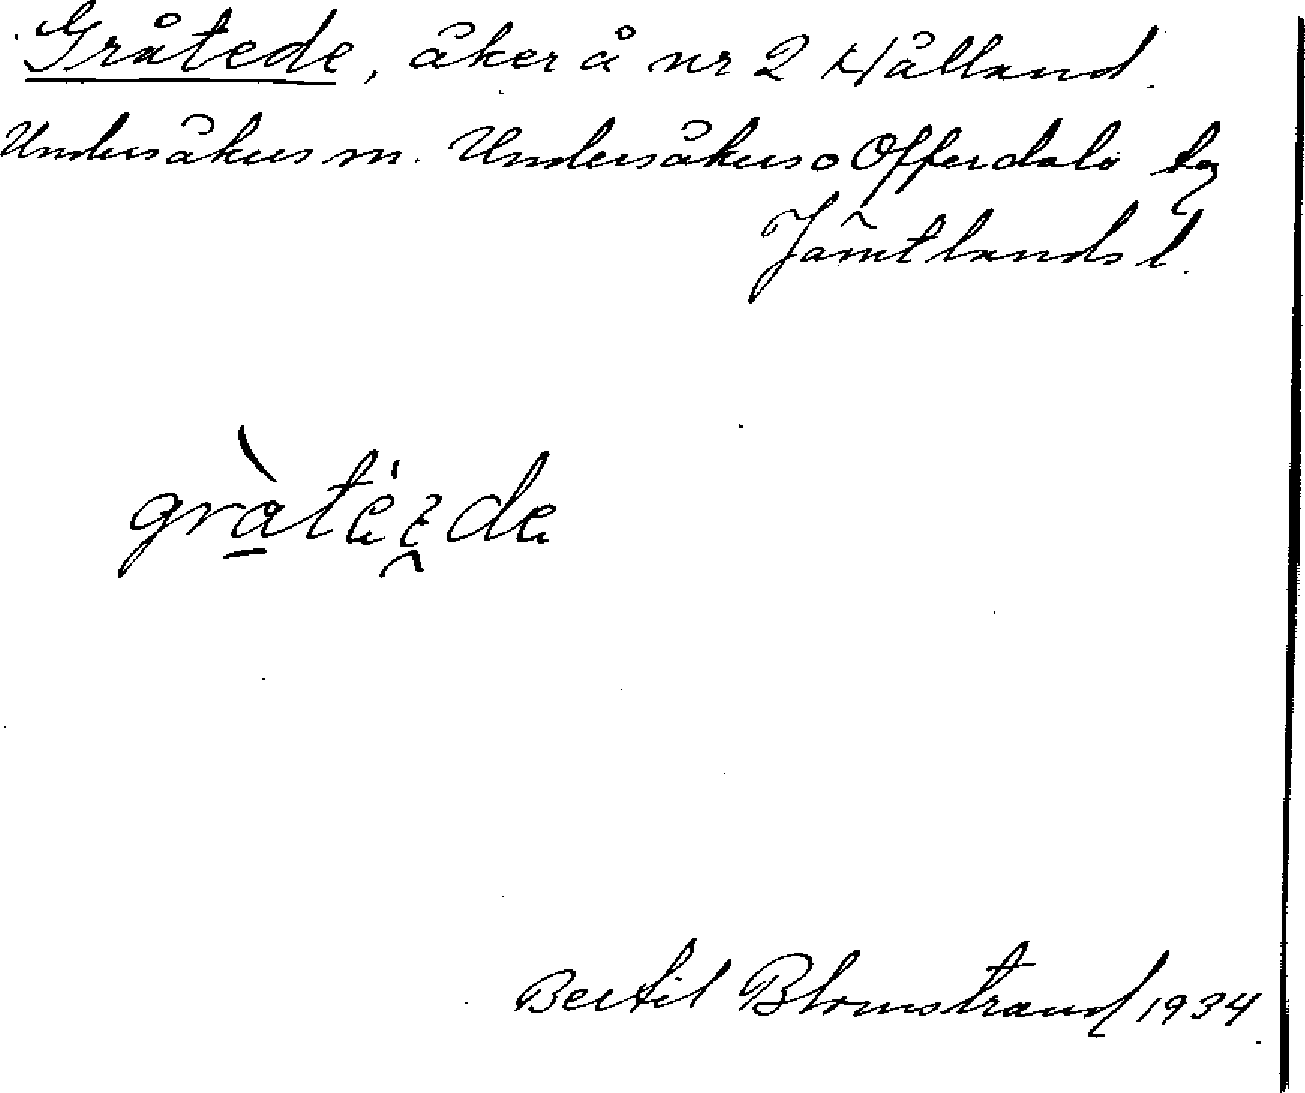 Gråtede, åker å nr 2 Hålland.
Undersåkers sn. Undersåkers o Offerdals tg
Jämtlands l.
gràtèᶎde
Bertil Blomstrand 1934